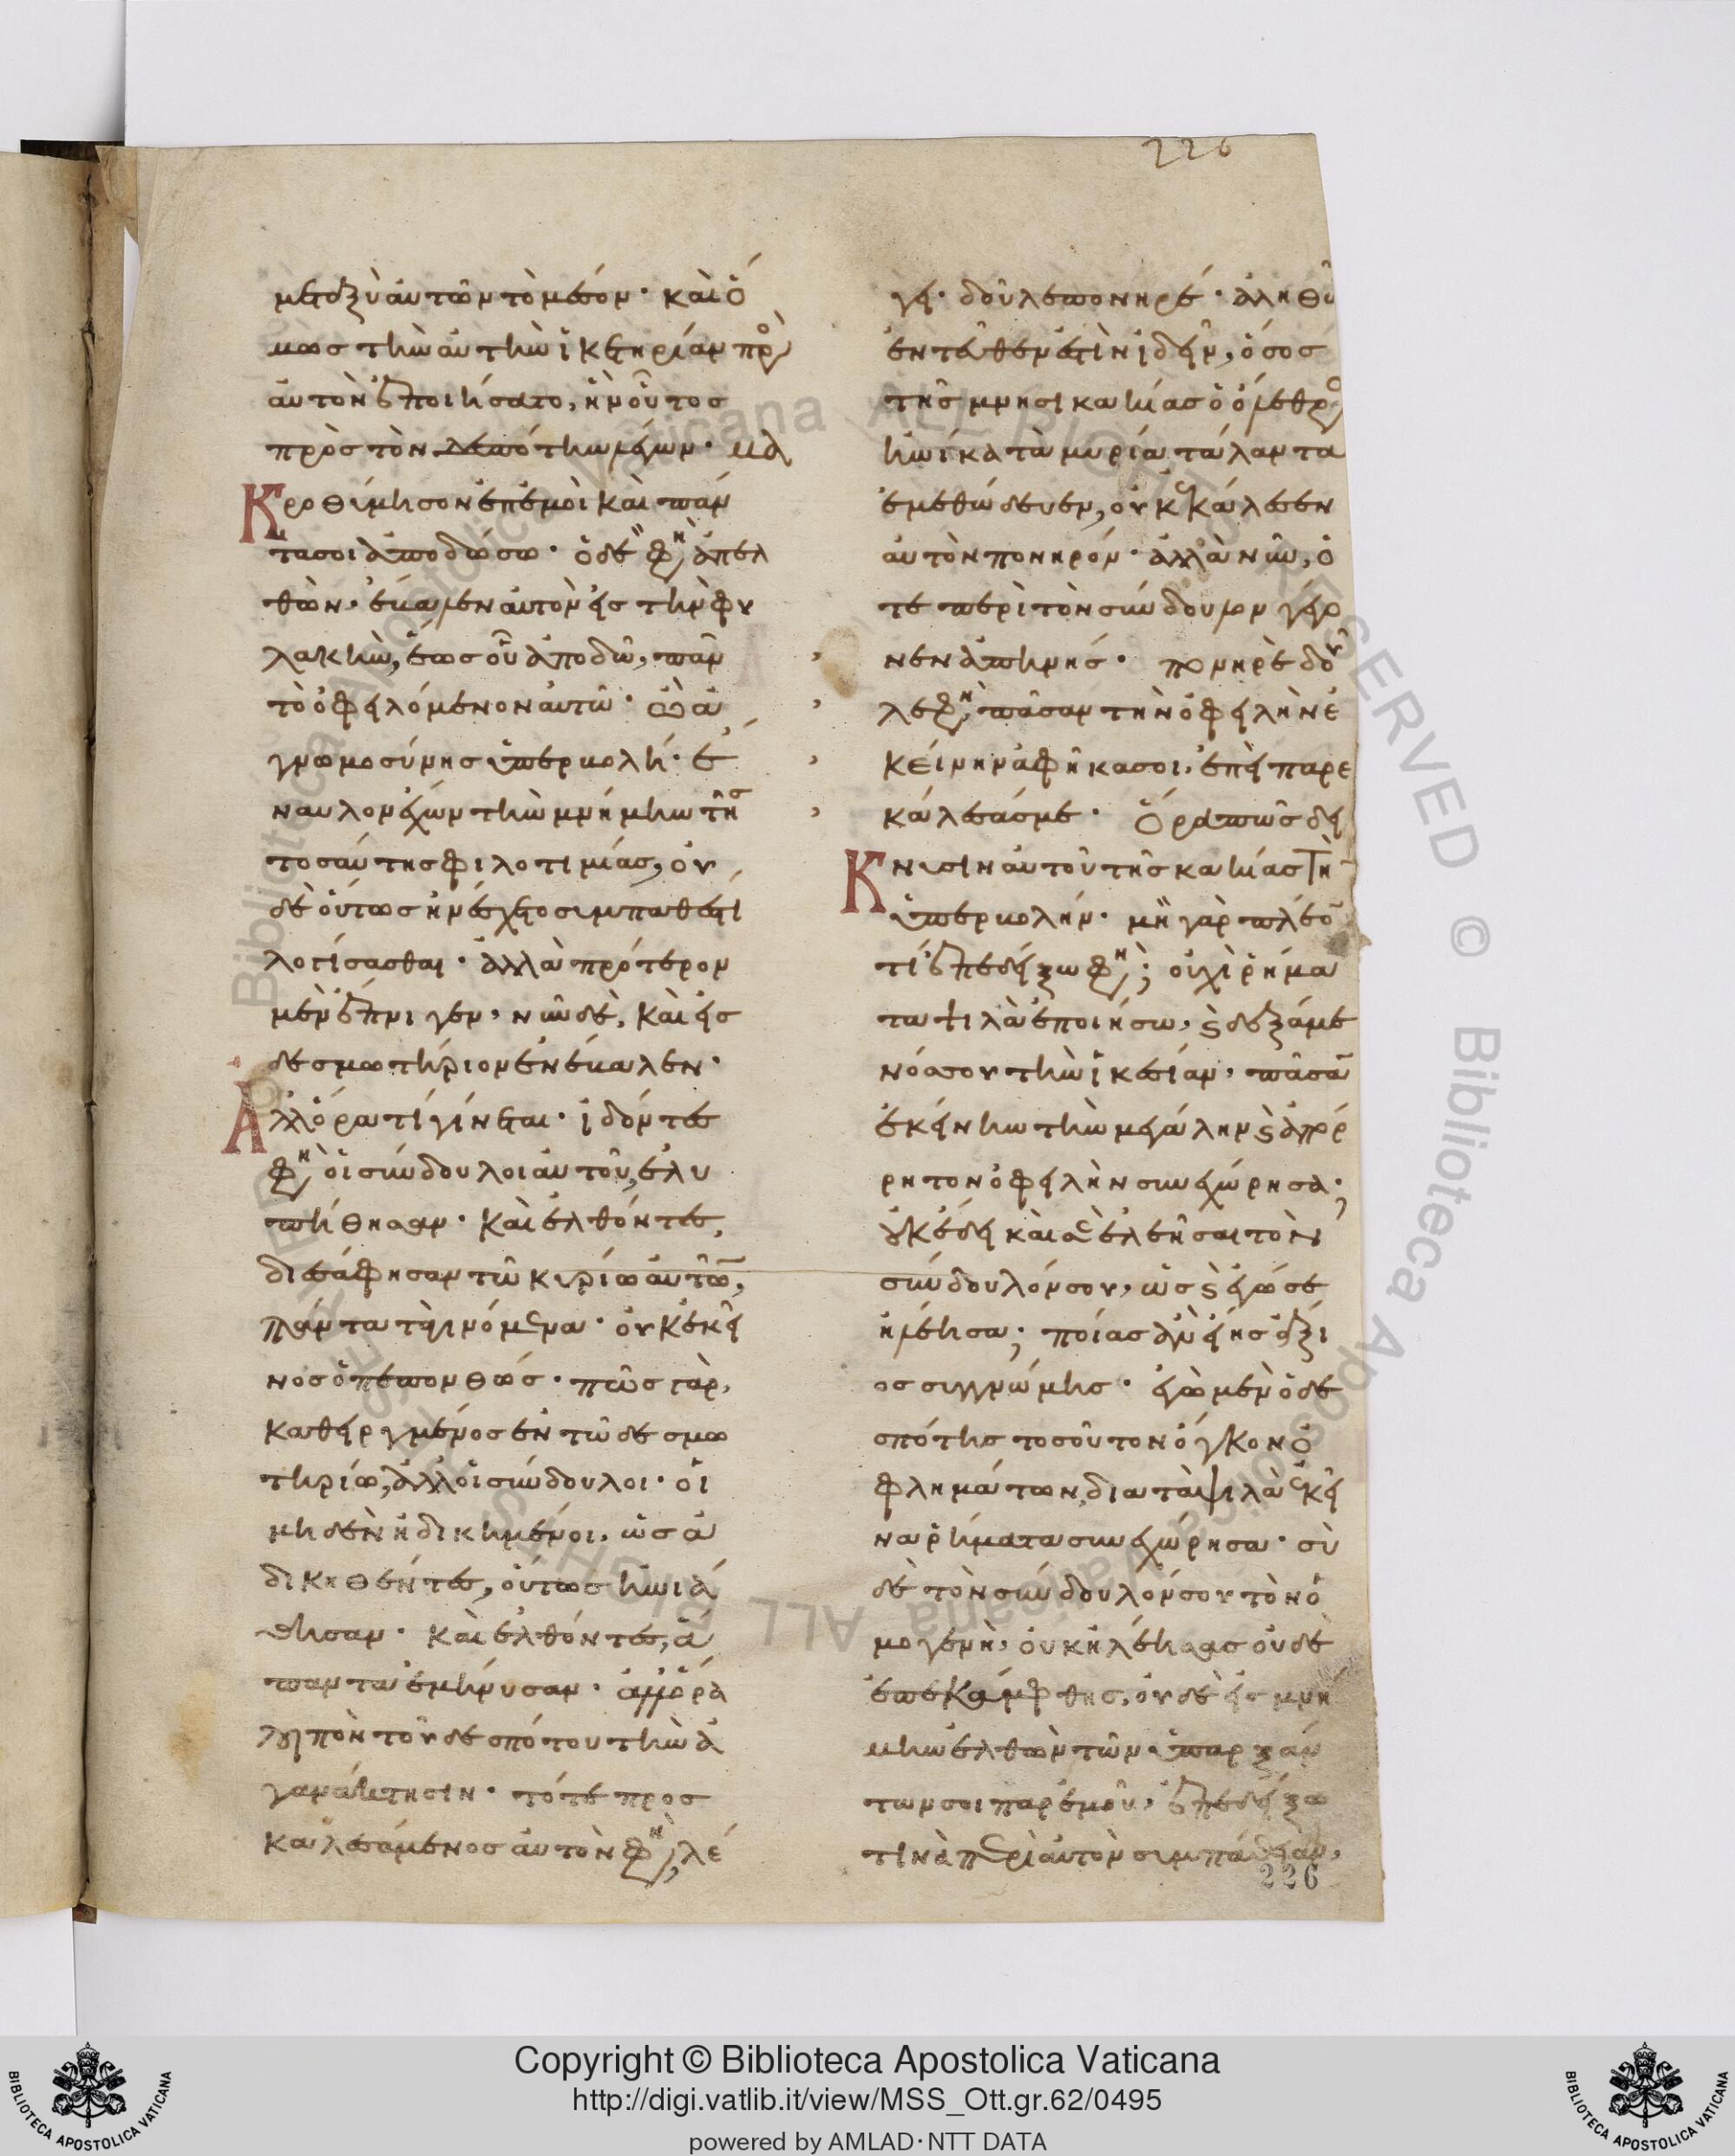 226
μεταξὺ αὐτῶν τὸ μέσον· καὶ ὅ
μως τὴν αὐτὴν ἱκετηρίαν πρὸ
αὐτὸν ἐποιήσατο, ἣν οὗτος
πρὸς τὸν δεσπότην λέγων· μα
κροθύμησον ἐπ ἐμοὶ καὶ πάν
τα σοι ἀποδώσω· ὁ δὲ φη ἀπελ
θὼν, ἔβαλεν αὐτὸν εἰς τὴν φυ
λακὴν, ἕως οὗ ἀποδῶ, πᾶν
τὸ ὀφειλόμενον αὐτῶ· ὢ ἀ
γνωμοσύνης ὑπερβολή· ἔ
ναυλον ἔχων τὴν μνήμην τῆς
τοσαύτης φιλοτιμίας, οὐ
δὲ οὕτως ἠνέσχετο συμπαθεῖ
λοτίσασθαι· ἀλλὰ πρότερον
μὲν ἔπνιγεν, νῦν δὲ, καὶ εἰς
δεσμωτήριον ἐνέβαλεν·
Ἀλλ ὅρα τί γίνεται· ἰδόντες
φη οἱ σύνδουλοι αὐτοῦ, ἐλυ
πήθησαν· καὶ ἐλθόντες,
διεσάφησαν τῶ κυρίω αὐτῶν,
πάντα τὰ γινόμενα· οὐκ ἐκεῖ
νος ὁ πεπονθώς· πῶς γὰρ,
καθειργμένος ἐν τῶ δεσμω
τηρίω, ἀλλ οἱ σύνδουλοι· οἱ
μηδὲν ἠδικημένοι, ὡς ἀ
δικηθέντες, οὕτως ἠνιά
θησαν· καὶ ἐλθόντες, ἅ
παντα ἐμήνυσαν· ἀλλ ὅρα
λοιπὸν τοῦ δεσπότου τὴν ἀ
γανάκτησιν· τότε προς
καλεσάμενος αὐτὸν φη, λέ
γει· δοῦλε πονηρέ· ἀληθῶ
ἐνταῦθεν ἔστιν ἰδεῖν, ὅσος
τῆς μνησικακίας ὁ ὄλεθρο
ἡνίκα τὰ μυρία τάλαντα
ἐμεθώδευεν, οὐκ ἐκάλεσεν
αὐτὸν πονηρόν· ἀλλὰ νῦν, ὅ
τε περὶ τὸν σύνδουλον γέγο
νεν ἀπηνής· πονηρὲ δοῦ
λε φη, πᾶσαν τὴν ὀφειλὴν ἐ
κείνην ἀφῆκα σοι, ἐπεὶ παρε
κάλεσάς με· Ὅρα πῶς δεί
κνυσιν αὐτοῦ τῆς κακίας τὴν
ὑπερβολήν· μὴ γὰρ πλέον
τί ἐπεδείξω φη; οὐχὶ ῥήμα
τα ψιλὰ ἐποιήσω, καὶ δεξάμε
νός σου τὴν ἱκεσίαν, πᾶσαν
ἐκείνην τὴν μεγάλην καὶ ἀπόρ
ρητον ὀφειλὴν συνεχώρησα;
οὐκ ἔδει καὶ σὲ ἐλεῆσαι τὸν
σύνδουλόν σου, ὡς καὶ ἐγώ σε
ἠλέησα; ποίας ἂν εἴης ἄξι
ος συγγνώμης· ἐγὼ μὲν ὁ δε
σπότης τοσοῦτον ὄγκον ὀ
φλημάτων, διὰ τὰ ψιλὰ ἐκεῖ
να ῥήματα συνεχώρησα· σὺ
δὲ τὸν σύνδουλόν σου τὸν ὁ
μογενῆ, οὐκ ἠλέησας οὐδὲ
ἐπεκάμφθης, οὐδὲ εἰς μνή
μην ἐλθὼν τῶν ὑπαρξάν
των σοι παρ ἐμοῦ, ἐπεδείξω
τινὰ περὶ αὐτὸν συμπάθειαν,
226
Copyright © Biblioteca Apostolica Vaticana
http://digi.vatlib.it/view/MSS_Ott.gr.62/0495
powered by AMLAD·NTT DATA
BIBLIOTECA APOSTOLICA VATICANA
BIBLIOTECA APOSTOLICA VATICANA